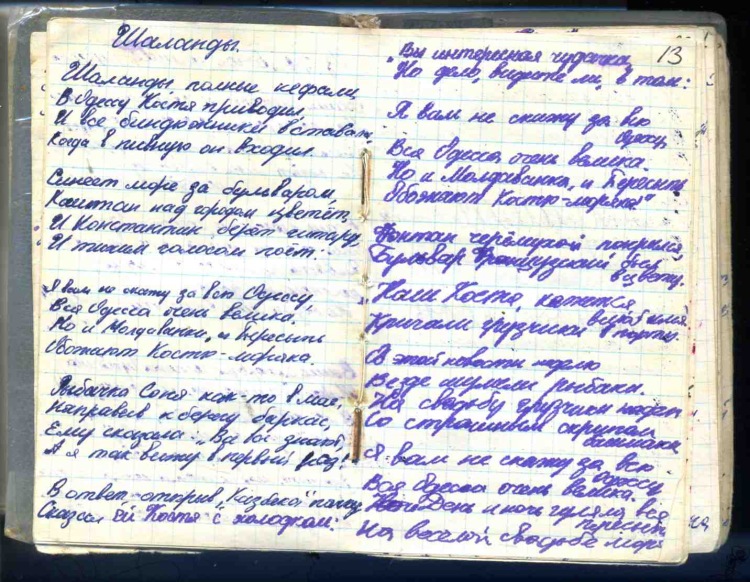 Шаланды.
Шаланды, полные кефали,
В Одессу Костя приводил
И все биндюжники вставали,
Когда в пивную он входил.
Синеет море за бульваром,
Каштан над городом цветёт,
И Константин берёт гитару
И тихим голосом поёт:
Я вам не скажу за всю Одессу
Вся Одесса очень велика.
Но и Молдаванка, и Пересыпь
Обожают Костю-моряка.
Рыбачка Соня как-то в мае,
Направив к берегу баркас,
Ему сказала: „Вас все знают,
А я так вижу в первый раз!"
В ответ, открыв „Казбека" пачку
Сказал ей Костя с холодком:
13
„Вы интересная чудачка,
Но дело, видите ли, в том:
Я вам не скажу за всю
Одессу
Вся Одесса очень велика
Но и Молдаванка, и Пересыпь
Обожают Костю-моряка"
Фонтан черёмухой покрылся
Бульвар Французский был
в цвету.
Наш Костя, кажется,
влюбился
Кричали грузчики в порту.
Об этой новости неделю
Везде шумели рыбаки.
На свадьбу грузчики надели
Со страшным скрипом
башмаки
Я вам не скажу за всю
Одессу
Вся Одесса очень велика.
День и ночь гуляла вся
Пересыпь
На весёлой свадьбе моряка